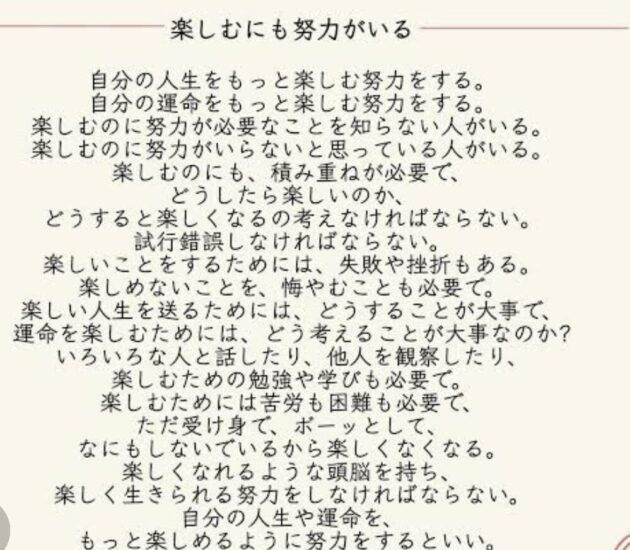 楽しむにも努力がいる
自分の人生をもっと楽しむ努力をする。
自分の運命をもっと楽しむ努力をする。
楽しむのに努力が必要なことを知らない人がいる。
楽しむのに努力がいらないと思っている人がいる。
楽しむのにも、積み重ねが必要で、
どうしたら楽しいのか、
どうすると楽しくなるの考えなければならない。
試行錯誤しなければならない。
楽しいことをするためには、失敗や挫折もある。
楽しめないことを、悔やむことも必要で。
楽しい人生を送るためには、どうすることが大事で、
運命を楽しむためには、どう考えることが大事なのか?
いろいろな人と話したり、他人を観察したり、
楽しむための勉強や学びも必要で。
楽しむためには苦労も困難も必要で、
ただ受け身で、ボーッとして、
なにもしないでいるから楽しくなくなる。
楽しくなれるような頭脳を持ち、
楽しく生きられる努力をしなければならない。
自分の人生や運命を、
もっと楽しめるように努力をするといい。